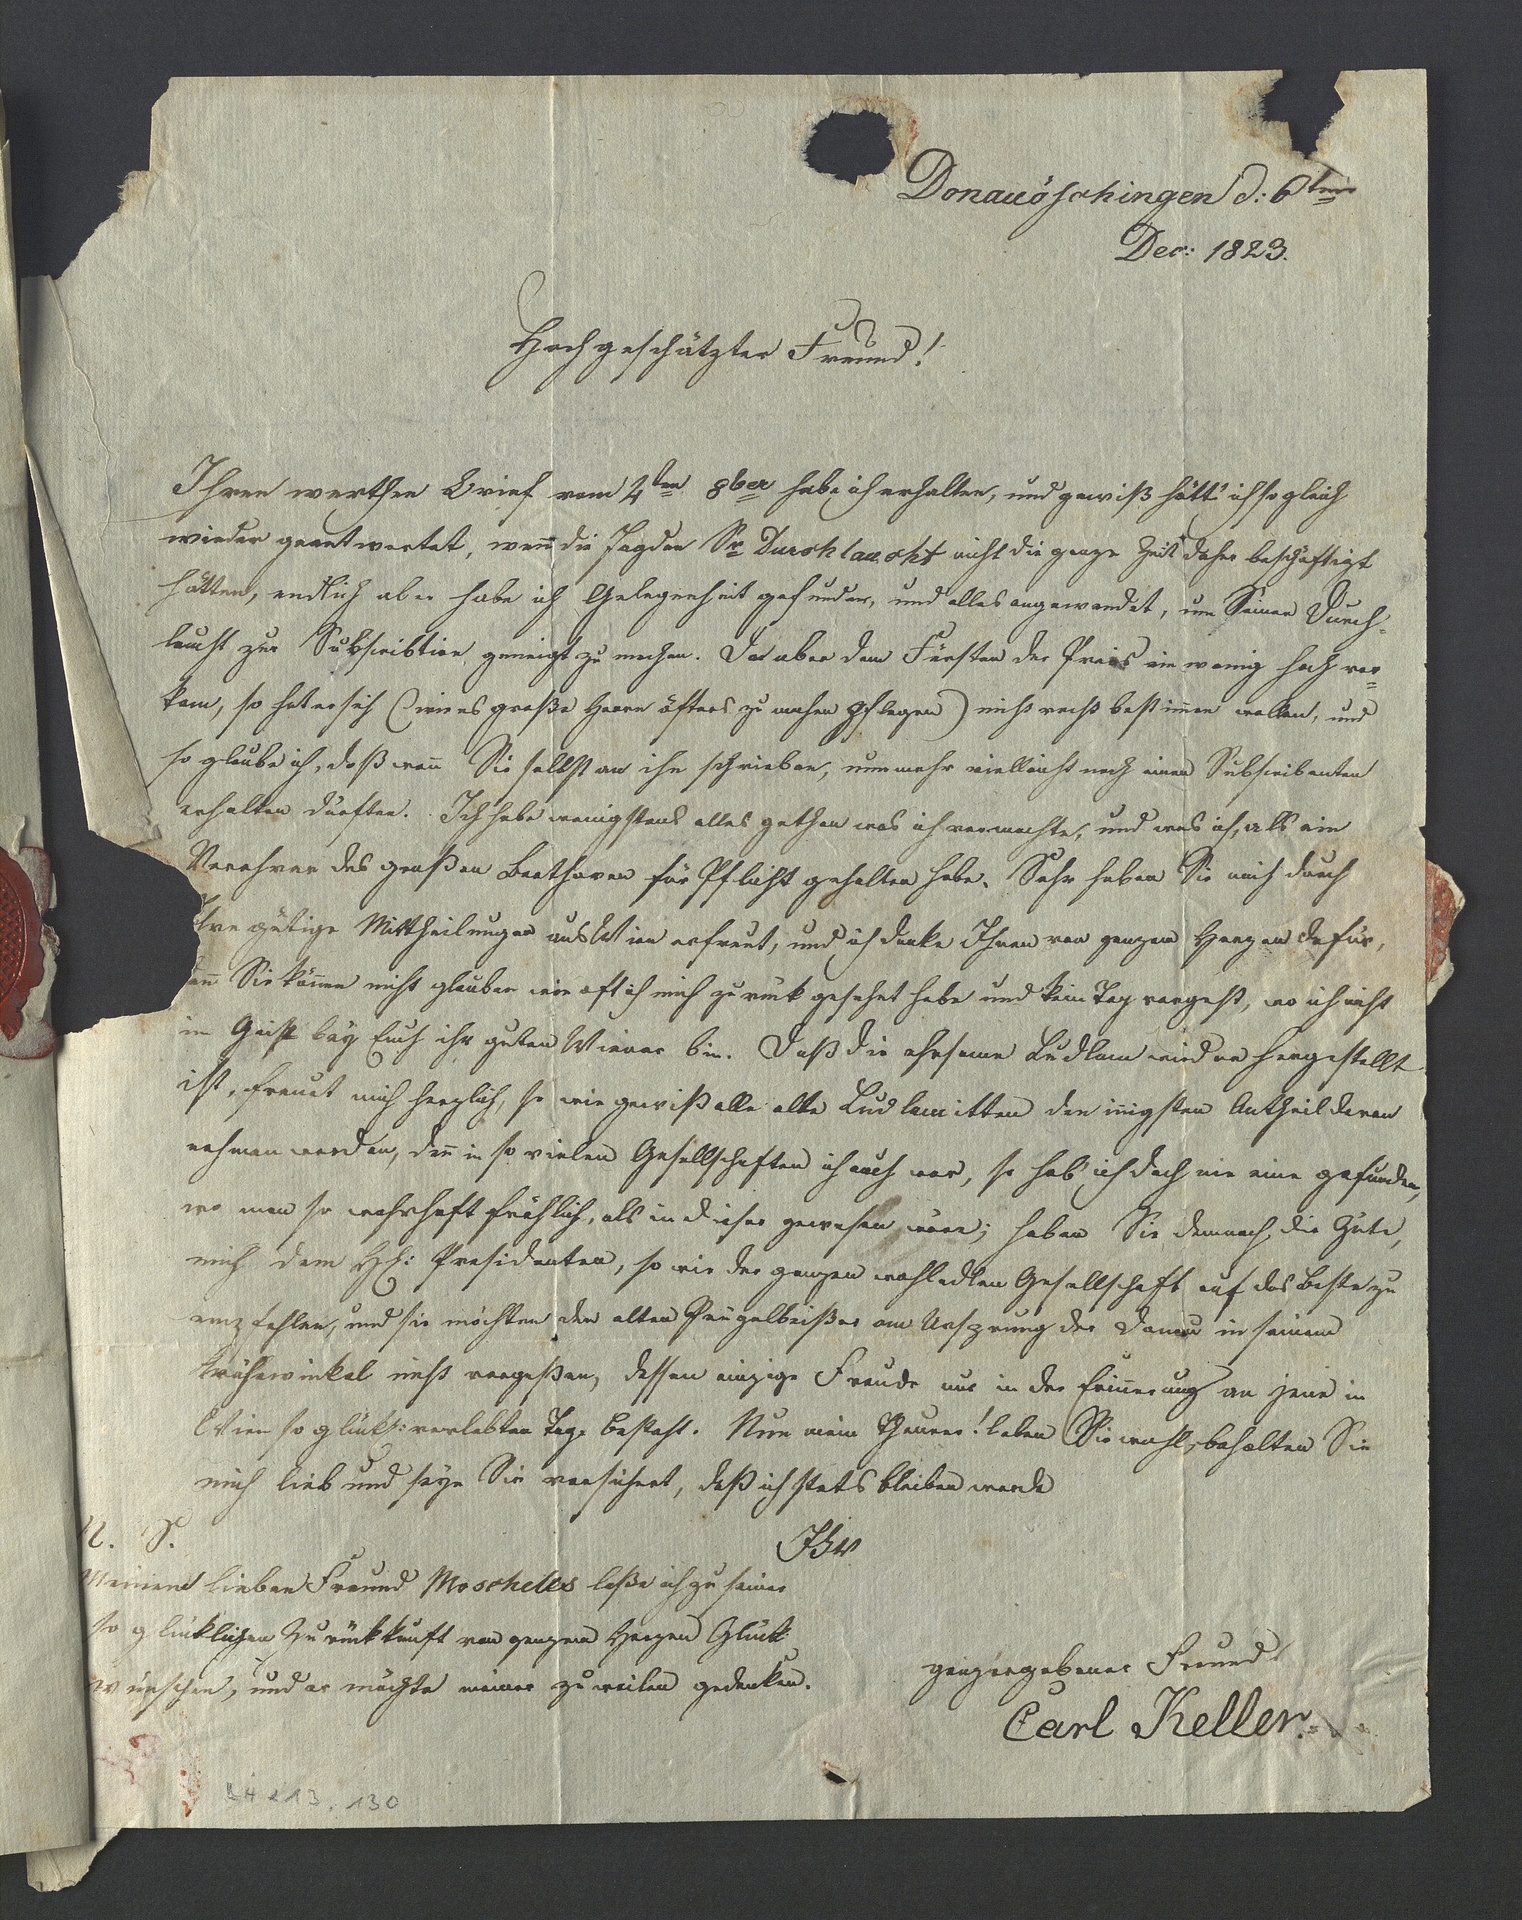 Donauöschingen d: 6ten
Dec: 1823.
Hochgeschätzter Freund!
Ihren werthen Brief vom 4ten 8ber habe ich erhalten, und gewiß hätt' ich sogleich
wieder geantwortet, wen̄ die Jagden Sr Durchlaucht nicht die ganze Zeit daher beschäftigt
hätten, endlich aber habe ich Gelegenheit gefunden, und alles angewendet, um Seiner Durch-
laucht zur Subscribtion geneigt zu machen. Da aber dem Fürsten der Preis ein wenig hoch vor=
kam, so hat er sich (wie es große Herrn öfters zu machen pflegen) nicht recht bestim̄en wollen, und
so glaube ich, daß wen̄ Sie selbst an ihn schrieben, nunmehr vielleicht noch einen Subscribenten
erhalten dürften. Ich habe wenigstens alles gethan was ich vermochte, und was ich, als ein
Verehrer des großen Beethoven für Pflicht gehalten habe. Sehr haben Sie mich durch
Ihre gütige Mittheilungen aus Wien erfreut, und ich danke Ihnen von ganzem Herzen dafür,
den̄ Sie kön̄en nicht glauben wie oft ich mich zurück gesehnt habe und kein Tag vergeht, wo ich nicht
im Geist bey Euch ihr guten Wiener bin. Daß die ehrsame Ludlam wieder hergestellt
ist, freuet mich herzlich, so wie gewiß alle alte Ludlamitten den in̄igsten Antheil daran
nehmen werden, den̄ in so vielen Gesellschaften ich auch war, so hab' ich doch nie eine gefunden,
wo man so wahrhaft fröhlich, als in dieser gewesen wäre; haben Sie demnach die Güte,
mich dem Hh: Presidenten, so wie der ganzen wohledlen Gesellschaft auf das Beste zu
empfehlen, und sie möchten den alten Prügelbeißer am Ursprung der Donau in seinem
Krähewinkel nicht vergeßen, dessen einzige Freude nur in der Erin̄erung an jene in
Wien so glückl: verlebten Tage besteht. Nun mein Theurer! leben Sie wohl, behalten Sie
mich lieb und seyn Sie versichert, daß ich stets bleiben werde
Ihr
N. S.
Meinem lieben Freund Moschelles laße ich zu seiner
so glücklichen Zurückkunft von ganzem Herzen Glück
wünschen, und er möchte meiner zuweilen gedenken.
ganz ergebener Freund
Carl Keller.
130